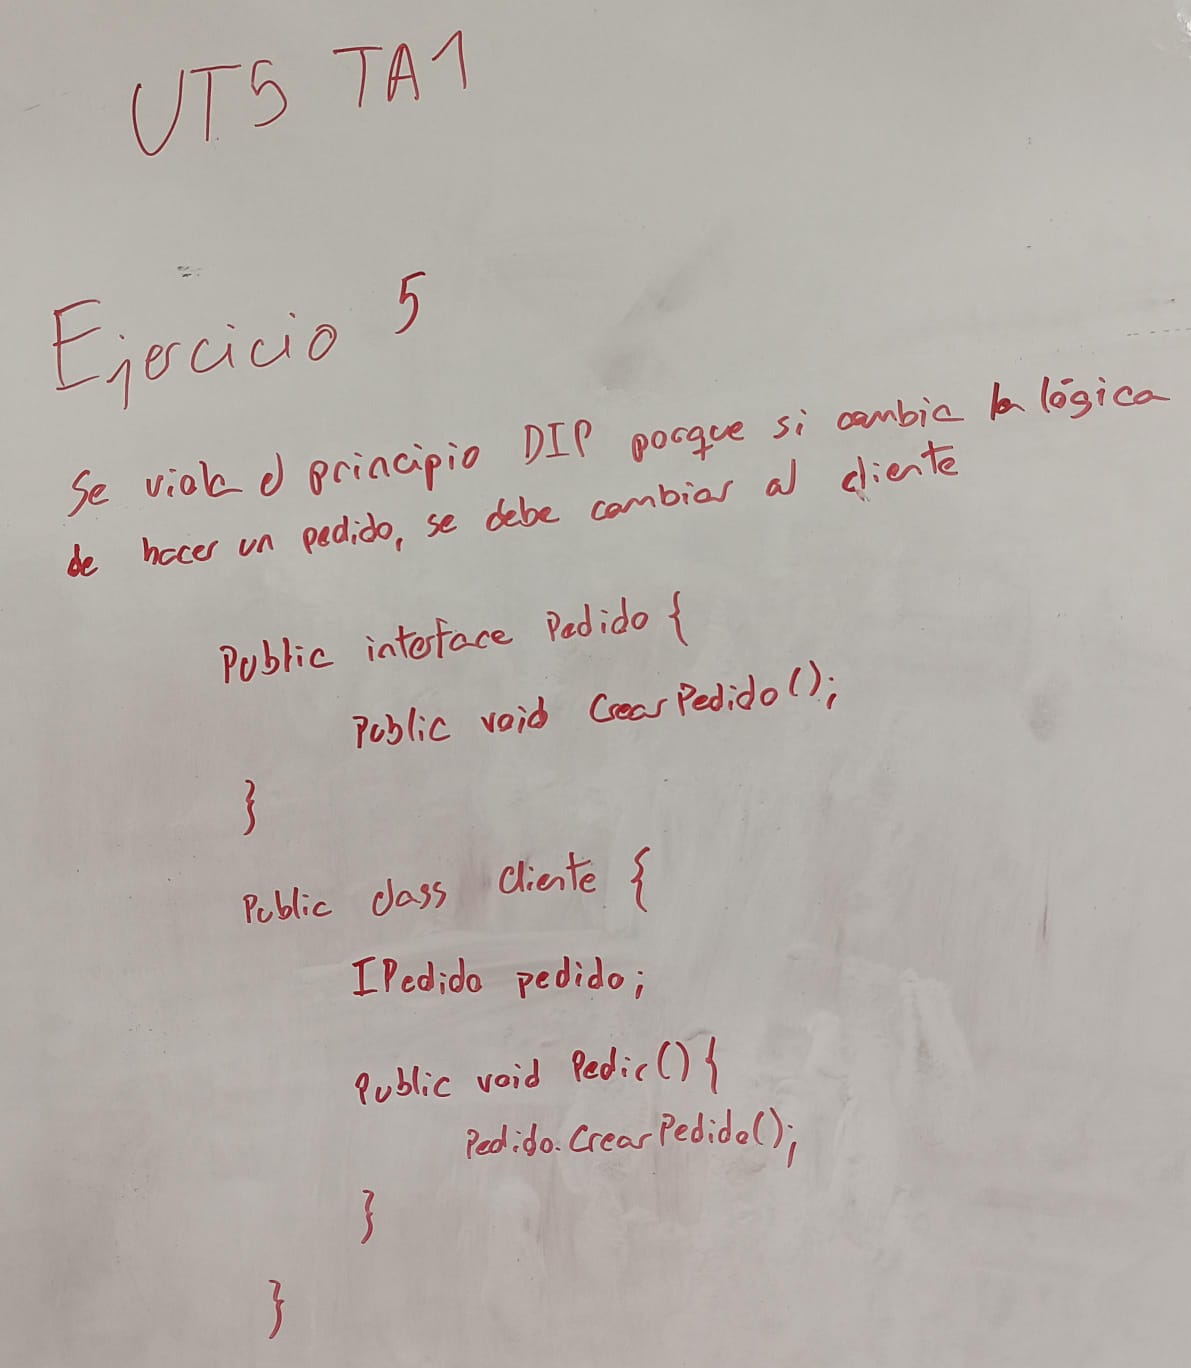 UT5 TA1
Ejercicio 5
Se viola el principio DIP porque si cambia la lógica
de hacer un pedido, se debe cambiar al cliente
Public interface Pedido {
Public void CrearPedido();
}
Public class cliente {
IPedido pedido;
Public void Pedir() {
Pedido.CrearPedido();
}
}